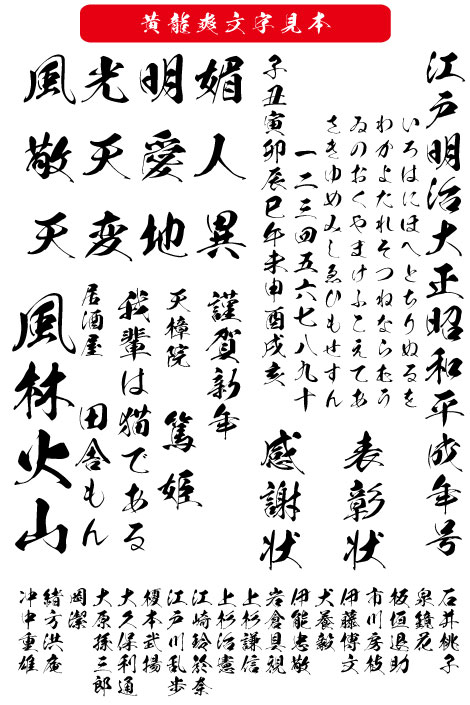 黄龍爽文字見本
江戸明治大正昭和平成年号
いろはにほへとちりぬるを
わかよたれそつねならむう
ゐのおくやまけふこえてあ
さきゆめみしゑひもせすん
一二三四五六七八九十
子丑寅卯辰巳午未申酉戌亥
表彰状
感謝状
風光明媚
敬天愛人
天変地異
謹賀新年
天樟院 篤姫
我輩は猫である
居酒屋 田舎もん
風林火山
石井桃子
泉鏡花
板垣退助
市川房枝
伊藤博文
犬養毅
伊能忠敬
岩倉具視
上杉謙信
上杉治憲
江崎玲於奈
江戸川乱歩
榎本武揚
大久保利通
大原孫三郎
岡潔
緒方洪庵
冲中重雄